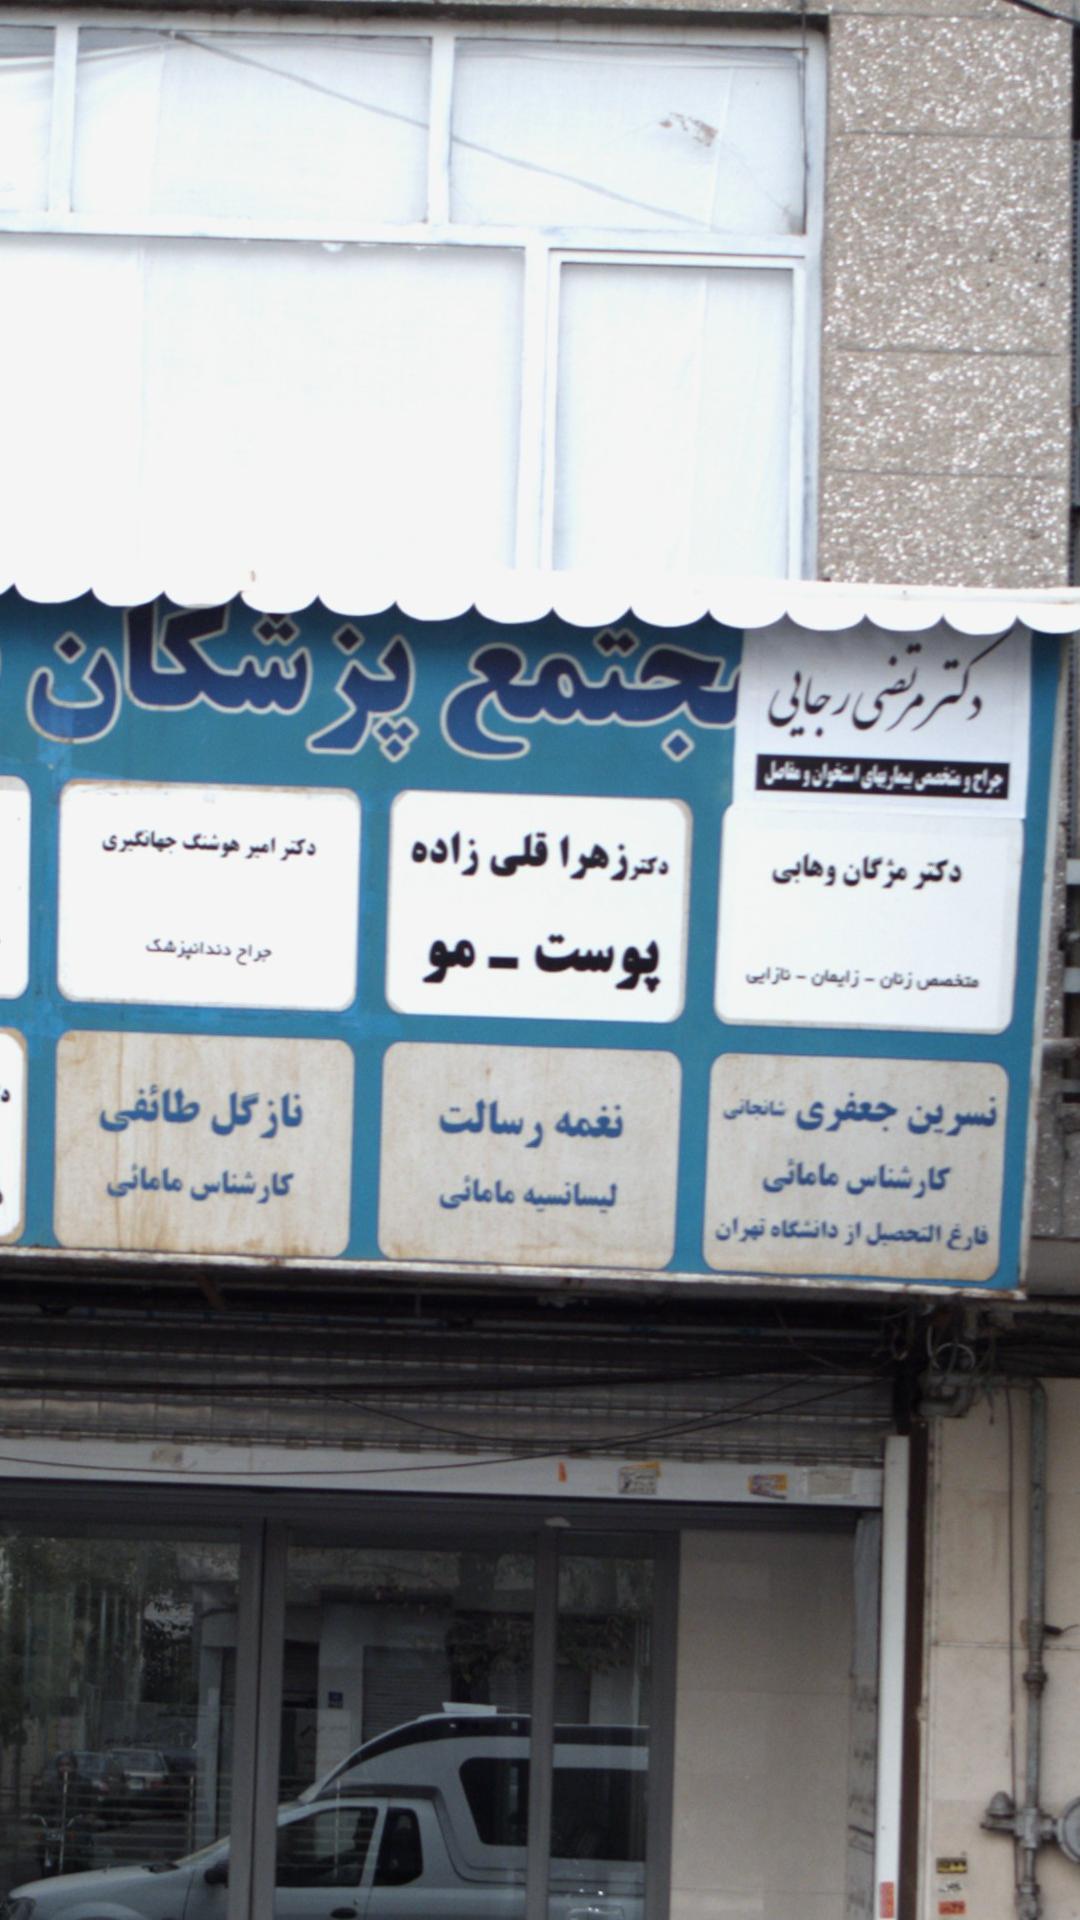 مجتمع پزشکان
دکتر مرتضی رجایی
جراح و متخصص بیماریهای استخوان و مفاصل
دکتر مژگان وهابی
متخصص زنان - زایمان - نازایی
دکتر زهرا قلی زاده
پوست - مو
دکتر امیر هوشنگ جهانگیری
جراح دندانپزشک
نسرین جعفری شانجانی
کارشناس مامائی
فارغ التحصیل از دانشگاه تهران
نغمه رسالت
لیسانسیه مامائی
نازگل طائفی
کارشناس مامائی